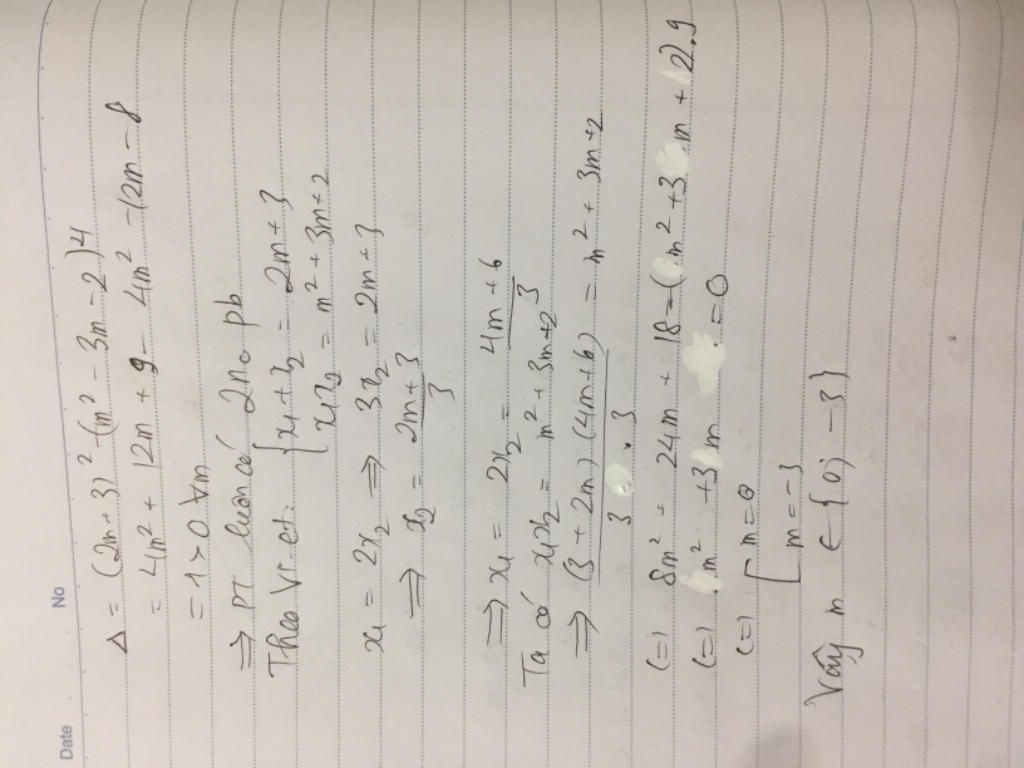 Date No
Δ = (2m+3)² - (m² - 3m - 2)4
= 4m² + 12m + 9 - 4m² - 12m - 8
= 1 > 0 ∀m
⇒ PT luôn có 2 no pb
Theo Vi-et: { x₁ + x₂ = 2m + 3
x₁x₂ = m² + 3m + 2
x₁ = 2x₂ ⇒ 3x₂ = 2m + 3
⇒ x₂ = (2m + 3)/3
⇒ x₁ = 2x₂ = (4m + 6)/3
Ta có x₁x₂ = m² + 3m + 2
⇒ (3 + 2m)(4m + 6)/(3 . 3) = m² + 3m + 2
(=) 8m² + 24m + 18 = (m² + 3m + 2).9
(=) m² + 3m = 0
(=) [ m = 0
m = -3
Vậy m ∈ {0; -3}